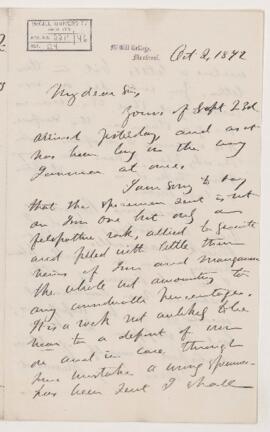 McGill College,
Montreal.
Oct 2, 1872
My dear Sir,
Yours of Sept 23d
arrived yesterday and as it
has been long in the way
I answer at once.
I am sorry to say
that the specimen sent is not
an Iron one but only a
rock, allied to
and filled with little
veins of Iron and manganese
the whole not amounting to
any considerable percentage.
It is a rock not unlikely to be
near to a deposit of iron
ore and in case, through
some mistake a wrong specimen
has been sent I shall